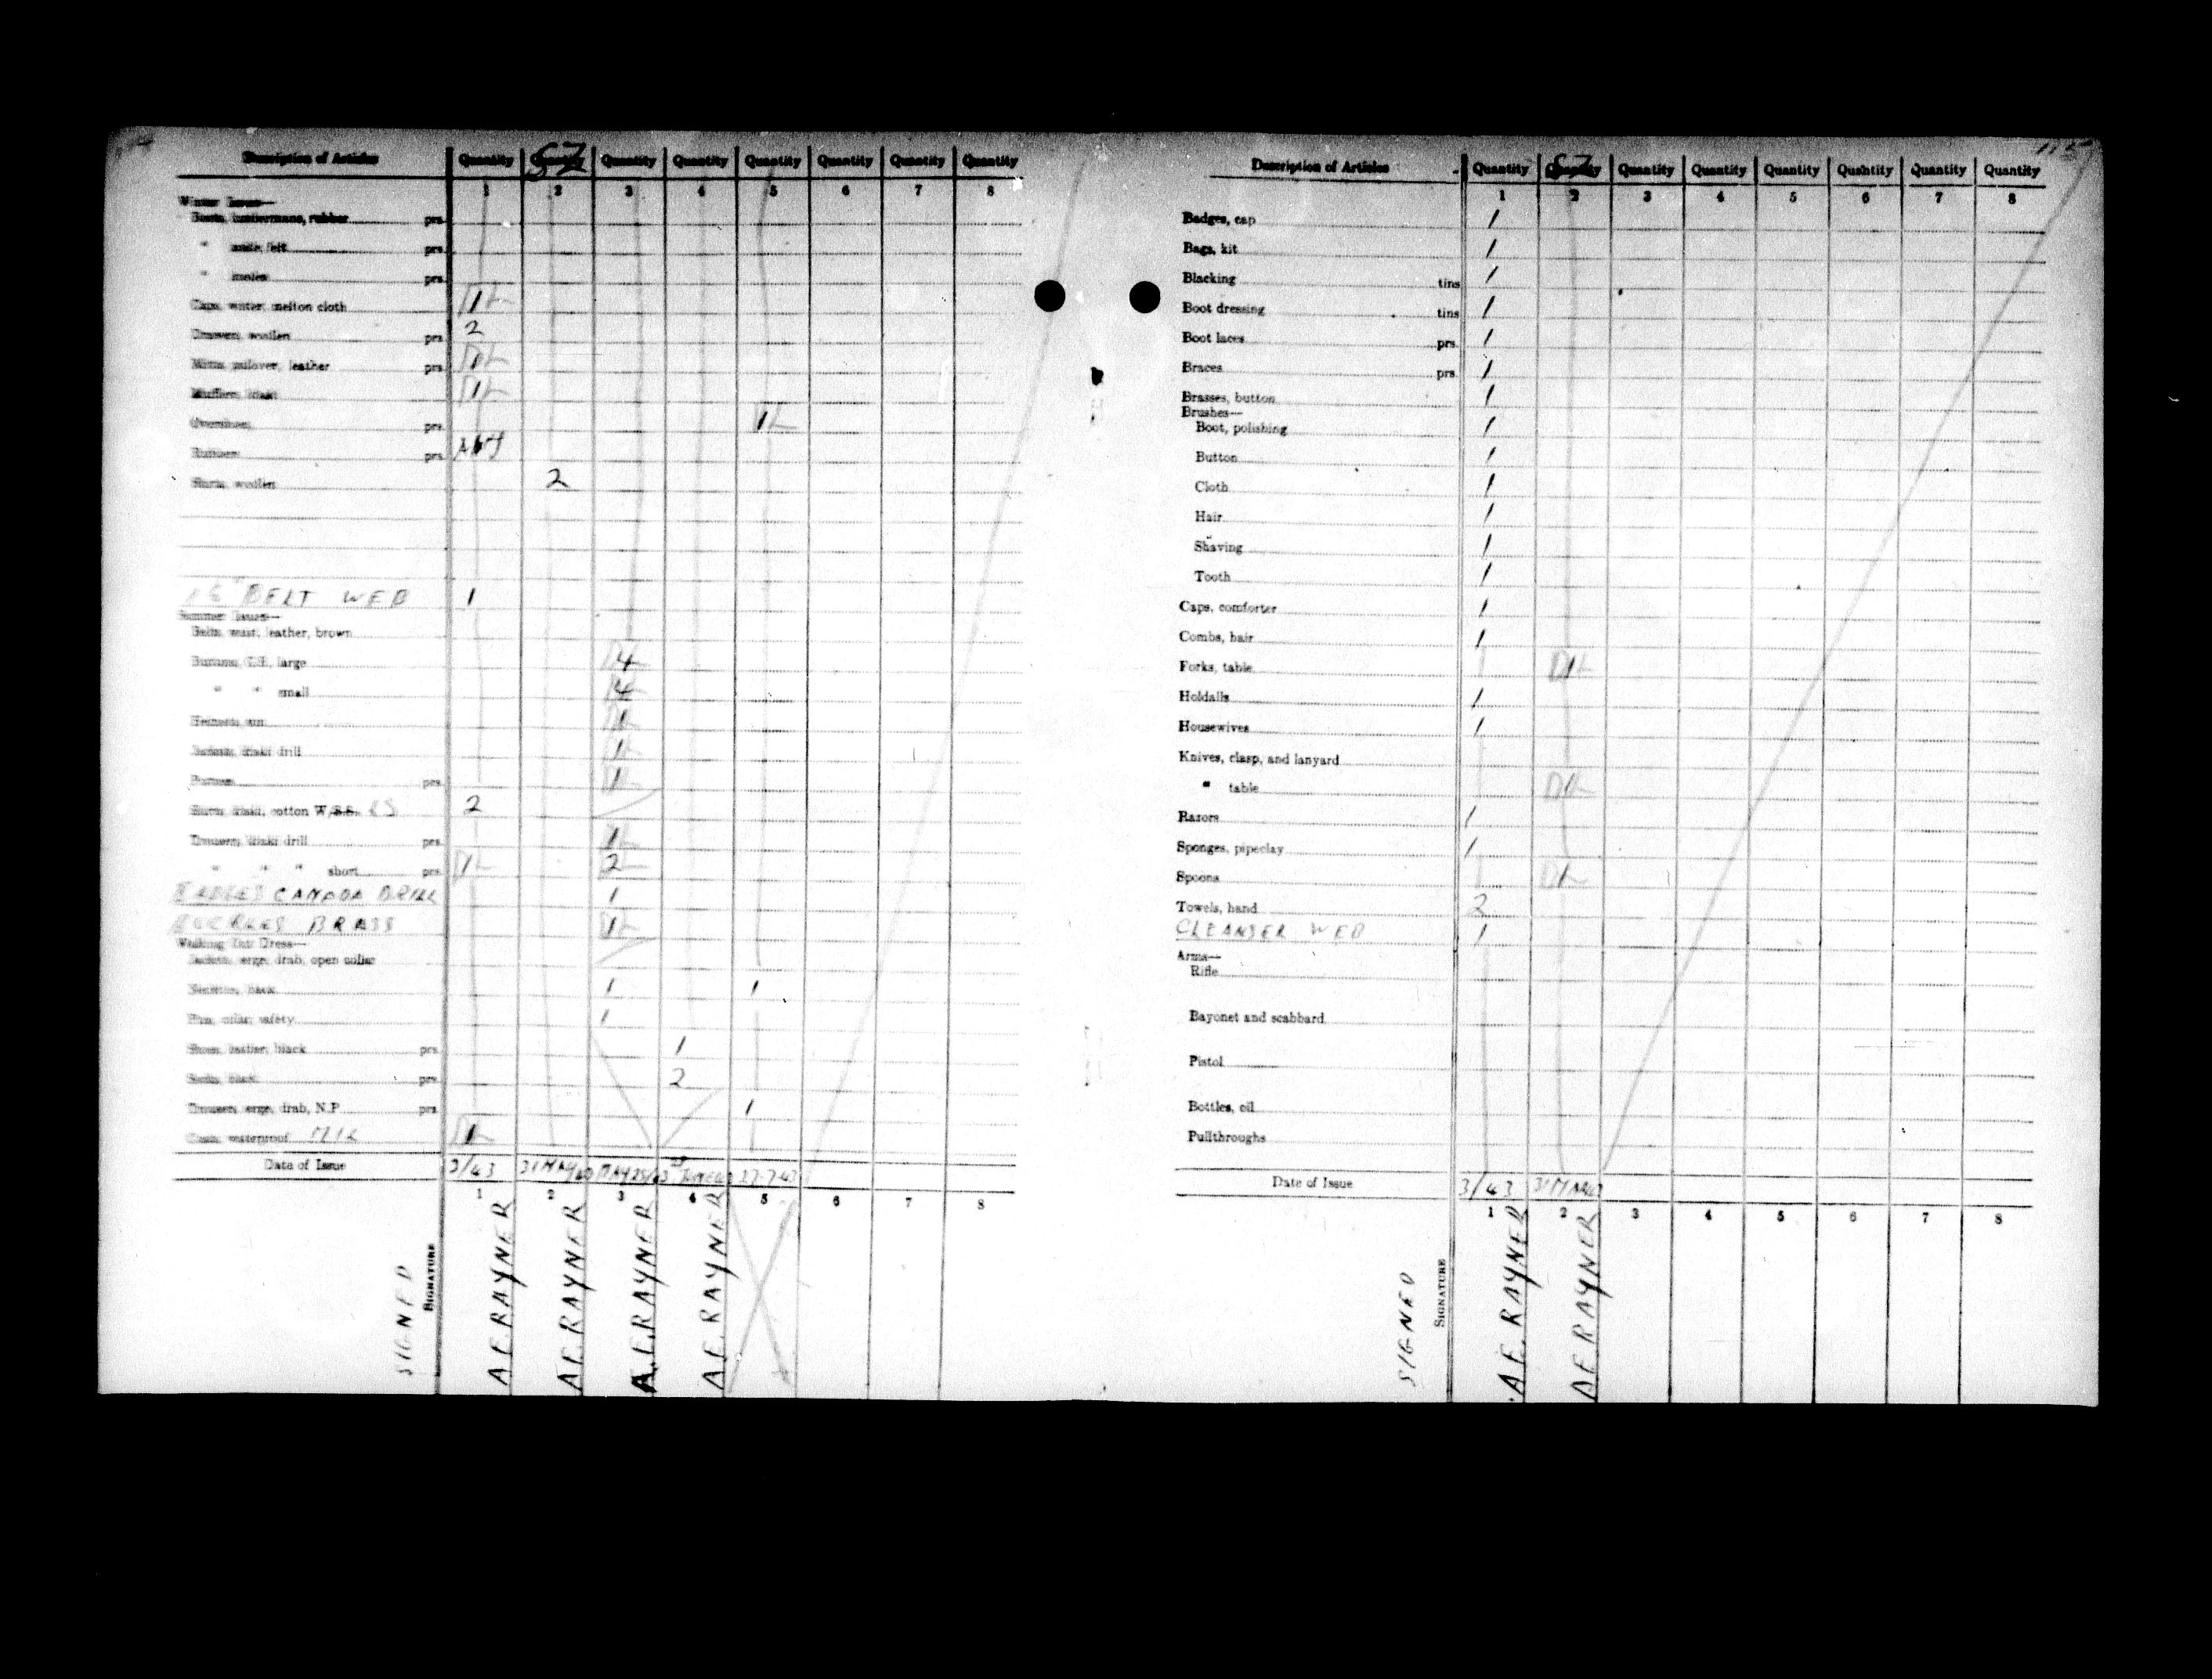 Description of Articles Quantity Quantity Quantity Quantity Quantity Quantity Quantity Quantity
1 2 3 4 5 6 7 8
Winter Issue—
Boots, rubber prs.
" felt prs.
" prs.
Caps, winter, melton cloth 1
Drawers, woollen prs. 2
Mitts, pullover, leather prs. 1
Mufflers, khaki 1
Overshoes prs. 1
prs.
Shirts, woollen 2
BELT WEB 1
Summer Issue—
Belts, waist, leather, brown
Buttons, large 4
" " small 4
Helmets, sun 1
khaki drill 1
prs. 1
Shirts, khaki, cotton W.S.S. 2
Trousers, khaki drill prs. 1
" " " short prs. 1 2
BADGES CANADA DRILL 1
BUCKLES BRASS 1
Walking Out Dress—
serge, drab, open collar
black 1 1
Pins, collar, safety 1
Shoes, leather, black prs. 1
Socks, black prs. 2
Trousers, serge, drab, N.P. prs. 1
waterproof 1
Date of Issue 3/43 27-7-43
1 2 3 4 5 6 7 8
SIGNED
SIGNATURE
A E RAYNER
A E RAYNER
A.E.RAYNER
A E RAYNER
Description of Articles Quantity Quantity Quantity Quantity Quantity Quantity Quantity Quantity
1 2 3 4 5 6 7 8
Badges, cap 1
Bags, kit 1
Blacking tins 1
Boot dressing tins 1
Boot laces prs. 1
Braces prs. 1
Brasses, button 1
Brushes—
Boot, polishing 1
Button 1
Cloth 1
Hair 1
Shaving 1
Tooth 1
Caps, comforter 1
Combs, hair 1
Forks, table 1
Holdalls 1
Housewives 1
Knives, clasp, and lanyard
" table 1
Razors 1
Sponges, pipeclay 1
Spoons 1
Towels, hand 2
CLEANSER WEB 1
Arms—
Rifle
Bayonet and scabbard
Pistol
Bottles, oil
Pullthroughs
Date of Issue 3/43
1 2 3 4 5 6 7 8
SIGNED
SIGNATURE
A E RAYNER
A E RAYNER